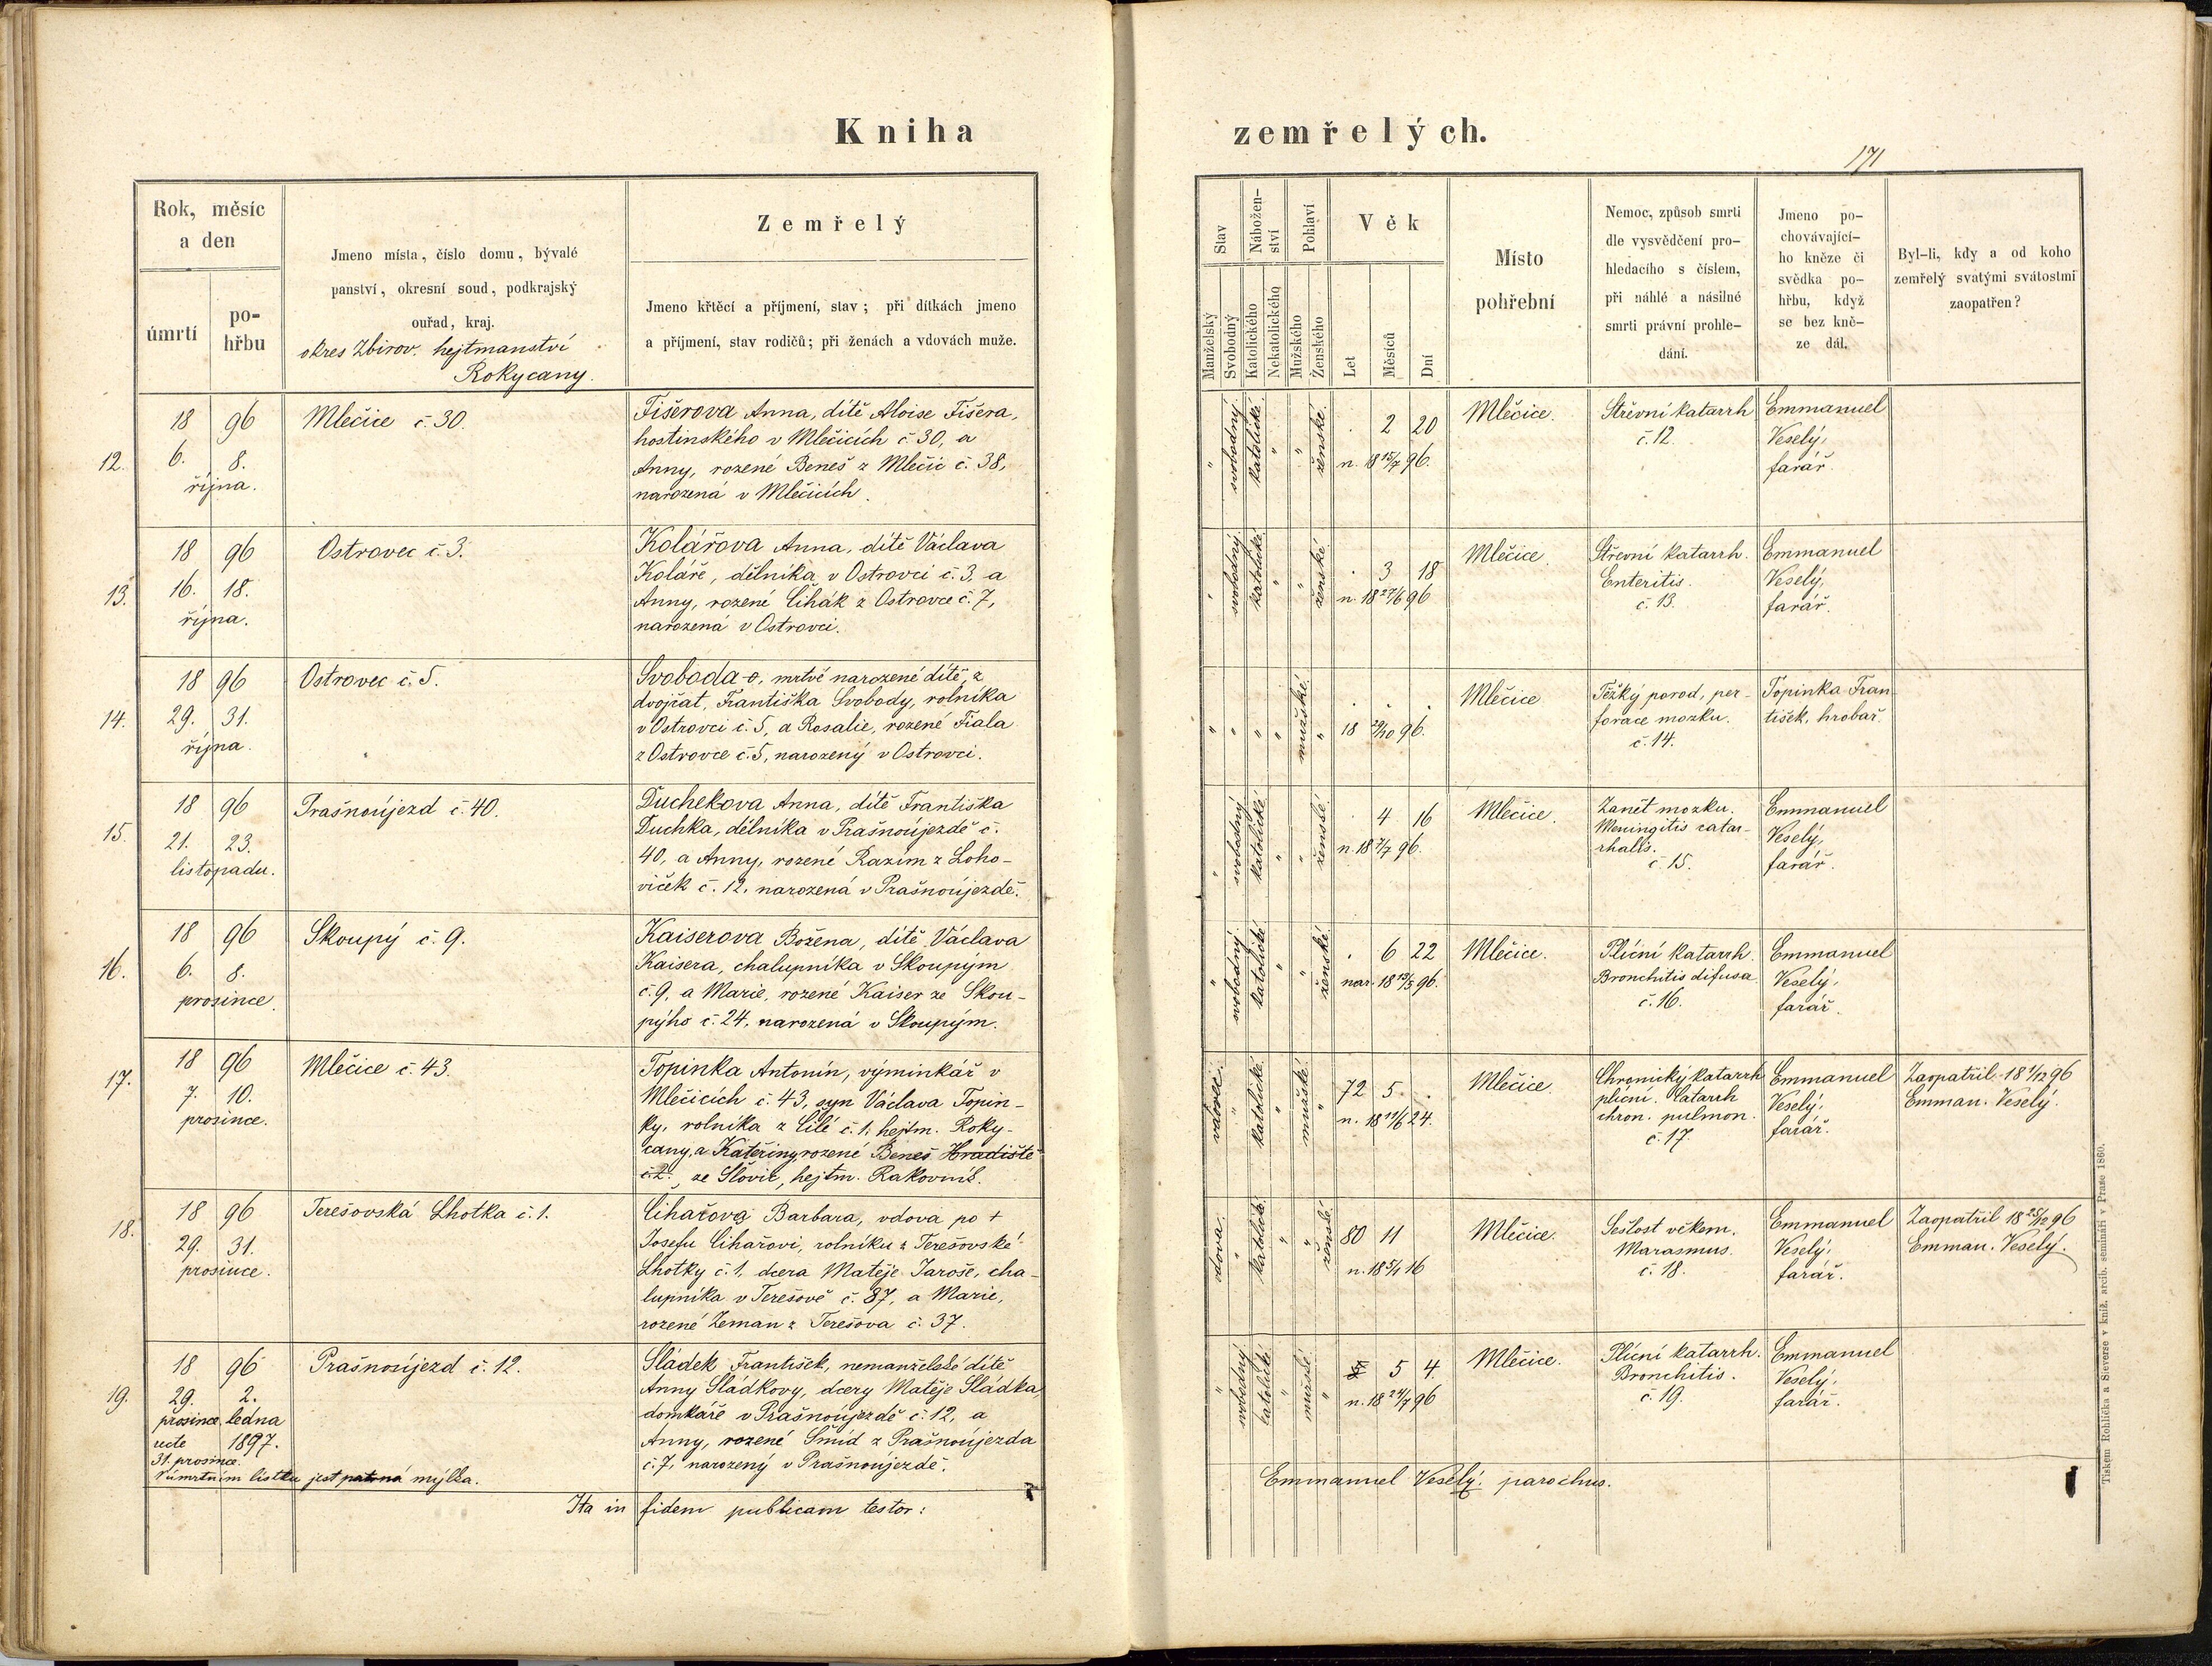 Kniha zemřelých.
171
Rok, měsíc
a den
úmrtí
po-
hřbu
Jmeno místa, číslo domu, bývalé
panství, okresní soud, podkrajský
ouřad, kraj.
okres Zbirov. hejtmanství
Rokycany.
Zemřelý
Jmeno křtěcí a příjmení, stav; při dítkách jmeno
a příjmení, stav rodičů; při ženách a vdovách muže.
Stav
Manželský
Svobodný
Nábožen-
ství
Katolického
Nekatolického
Pohlaví
Mužského
Ženského
Věk
Let
Měsíců
Dní
Místo
pohřební
Nemoc, způsob smrti
dle vysvědčení pro-
hledacího s číslem,
při náhlé a násilné
smrti právní prohle-
dání.
Jmeno po-
chovávající-
ho kněze či
svědka po-
hřbu, když
se bez kně-
ze dál.
Byl-li, kdy a od koho
zemřelý svatými svátostmi
zaopatřen?
12.
18 96
6. 8.
října.
Mlečice č. 30.
Fišerova Anna, dítě Aloise Fišera,
hostinského v Mlečicích č 30, a
Anny, rozené Beneš z Mlečic č. 38,
narozená v Mlečicích.
" svobodný katolické " " ženské.
. 2 20
n. 18 15/7 96.
Mlěčice.
Střevní katarrh
č. 12.
Emmanuel
Veselý,
farář.
13.
18 96
16. 18.
října.
Ostrovec č. 3.
Kolářova Anna, dítě Václava
Koláře, dělníka v Ostrovci č. 3, a
Anny, rozené Cihák z Ostrovce č. 7,
narozená v Ostrovci.
" svobodný katolické " " ženské
. 3 18
n. 18 27/6 96
Mlečice.
Střevní katarrh.
Enteritis.
č. 13.
Emmanuel
Veselý,
farář.
14.
18 96
29. 31.
října.
Ostrovec č. 5.
Svoboda-o, mrtvě narozené dítě, z
dvojčat, Františka Svobody, rolníka
v Ostrovci č. 5, a Rosalie, rozené Fiala
z Ostrovce č. 5, narozený v Ostrovci.
" " " " mužské. "
. . .
18 29/10 96.
Mlečice
Těžký porod, per-
forace mozku.
č. 14.
Topinka Fran
tišek, hrobař.
15.
18 96
21. 23.
listopadu.
Prašnoújezd č 40.
Duchekova Anna, dítě Františka
Duchka, dělníka v Prašnoújezdě č.
40, a Anny, rozené Razím z Loho-
viček č. 12, narozená v Prašnoújezdě.
" svobodný katolické " " ženské
. 4 16
n. 18 7/7 96.
Mlečice.
Zánět mozku.
Meningitis catar-
rhalis.
č 15.
Emmanuel
Veselý,
farář.
16.
18 96
6. 8.
prosince.
Skoupý č. 9.
Kaiserova Božena, dítě Václava
Kaisera, chalupníka v Skoupým
č. 9, a Marie, rozené Kaiser ze Skou-
pýho č. 24, narozená v Skoupým.
" svobodný katolické " " ženské
. 6 22
nar. 18 13/5 96.
Mlečice.
Plicní katarrh.
Bronchitis difusa
č. 16.
Emmanuel
Veselý,
farář.
17.
18 96
7. 10.
prosince.
Mlečice č. 43.
Topinka Antonín, výminkář v
Mlečicích č. 43, syn Václava Topin-
ky, rolníka z Cílé č. 1, hejtm. Roky-
cany, a Kateřiny rozené Beneš Hradiště
č. 2. ze Slovic, hejtm. Rakovník.
vdovec. " katolické. " mužské "
72 5 .
n. 18 11/6 24.
Mlečice.
Chronický katarrh
plicní. Catarrh
chron. pulmon.
č. 17.
Emmanuel
Veselý,
farář.
Zaopatřil 18 1/12 96
Emman. Veselý.
18.
18 96
29. 31.
prosince.
Terešovská Lhotka č. 1.
Cihařova Barbara, vdova po +
Josefu Cihařovi, rolníku z Terešovské
Lhotky č. 1, dcera Matěje Jaroše, cha-
lupníka v Terešově č. 87, a Marie,
rozené Zeman z Terešova č. 37.
vdova. " katolické. " " ženské
80 11
n. 18 5/1 16
Mlečice.
Sešlost věkem.
Marasmus.
č. 18.
Emmanuel
Veselý,
farář.
Zaopatřil 18 25/12 96
Emman. Veselý.
19.
18 96
29. 2.
prosince, ledna
recte 1897.
31. prosince.
V úmrtním lístku jest patrná mýlka.
Prašnoújezd č. 12.
Sládek František, nemanželské dítě
Anny Sládkovy, dcery Matěje Sládka,
domkáře v Prašnoújezdě č. 12, a
Anny, rozené Šmíd z Prašnoújezda
č. 7, narozený v Prašnoújezdě.
" svobodný katolické " mužské "
5 4.
n. 18 24/7 96
Mlečice.
Plicní katarrh.
Bronchitis.
č. 19.
Emmanuel
Veselý,
farář.
Ita in fidem publicam testor:
Emmanuel Veselý. parochus.
Tiskem Rohlíčka a Sieverse v kníž. arcib. semináři v Praze 1860.